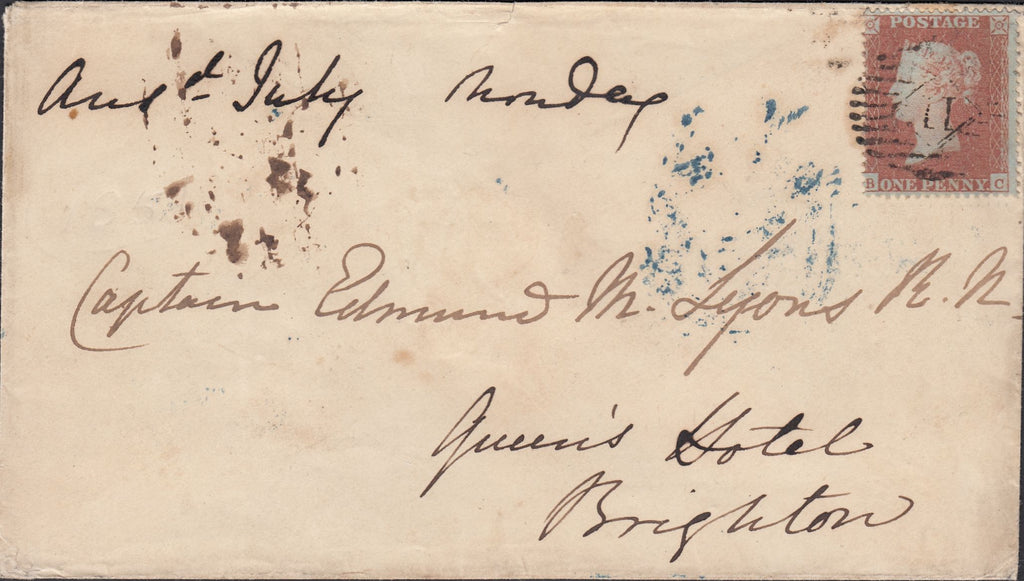 Ans^d July Monday
POSTAGE
11
B ONE PENNY C
Captain Edmund M. Lyons R. N.
Queen's Hotel
Brighton